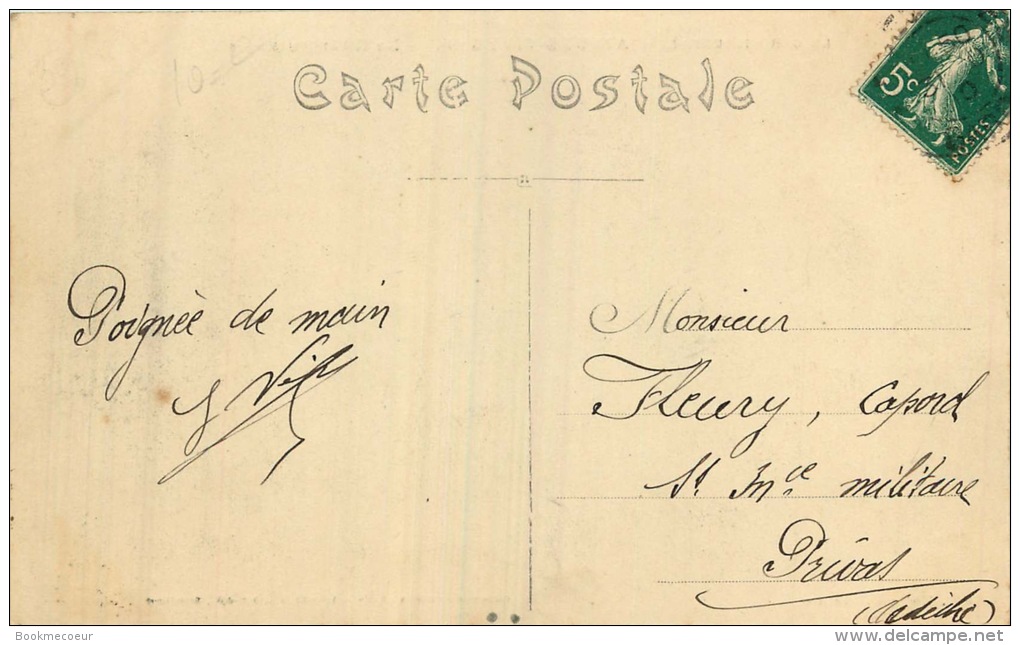 Carte Postale
5c
POSTES
Poignée de main
Monsieur
Fleury, caporal
militaire
Privas
(Ardèche)
Bookmecoeur
delcampe.net